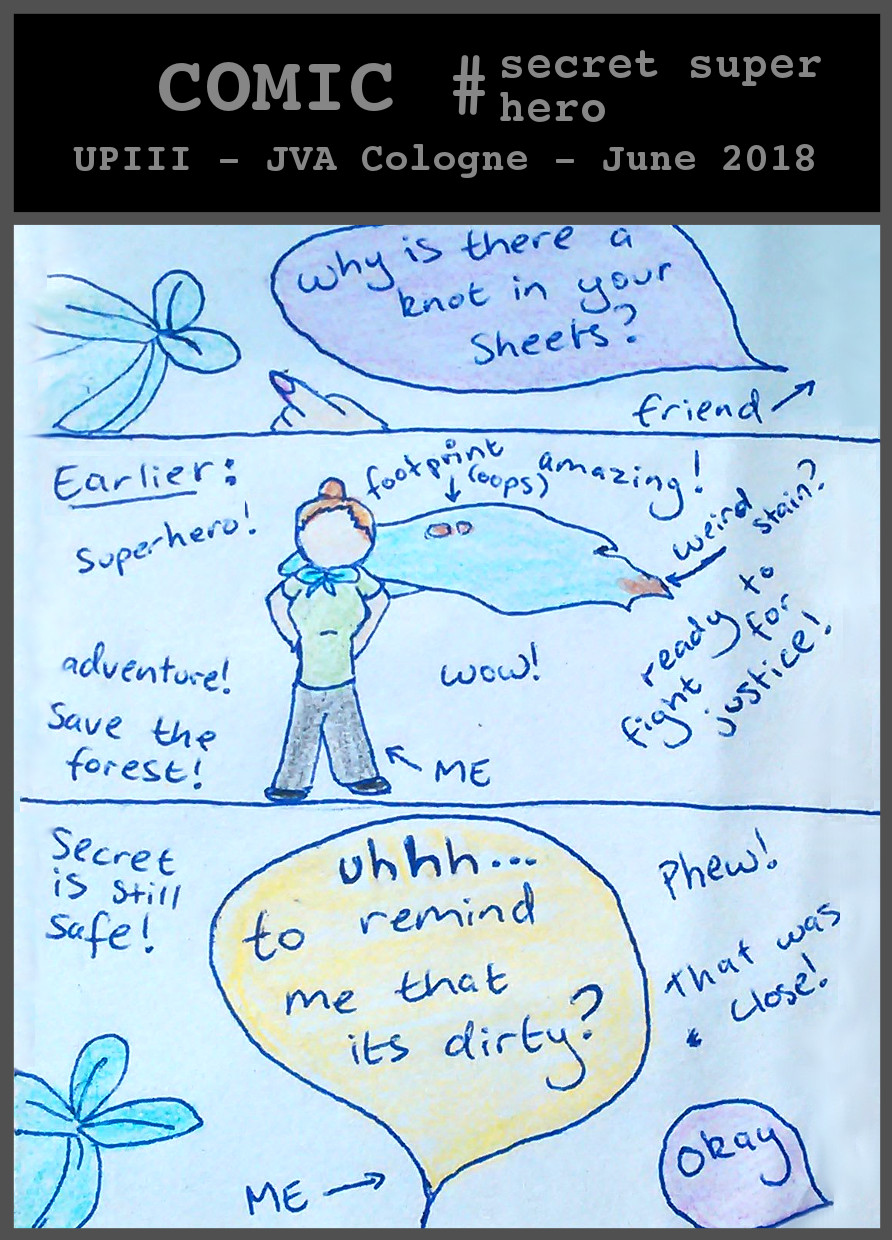 COMIC #secret super hero
UPIII - JVA Cologne - June 2018
why is there a
knot in your
sheets?
friend
Earlier:
superhero!
footprint
(oops)
amazing!
weird
stain?
adventure!
save the
forest!
wow!
ready to
fight for
justice!
ME
Secret
is still
safe!
uhhh...
to remind
me that
its dirty?
Phew!
That was
close!
ME
okay